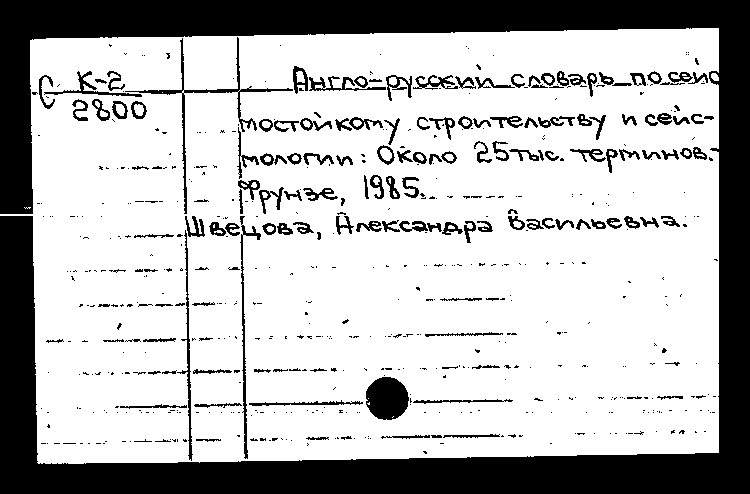 С К-2
2800
Англо-русский словарь по сейс
мостойкому строительству и сейс-
мологии: Около 25 тыс. терминов.-
Фрунзе, 1985.
Швецова, Александра Васильевна.